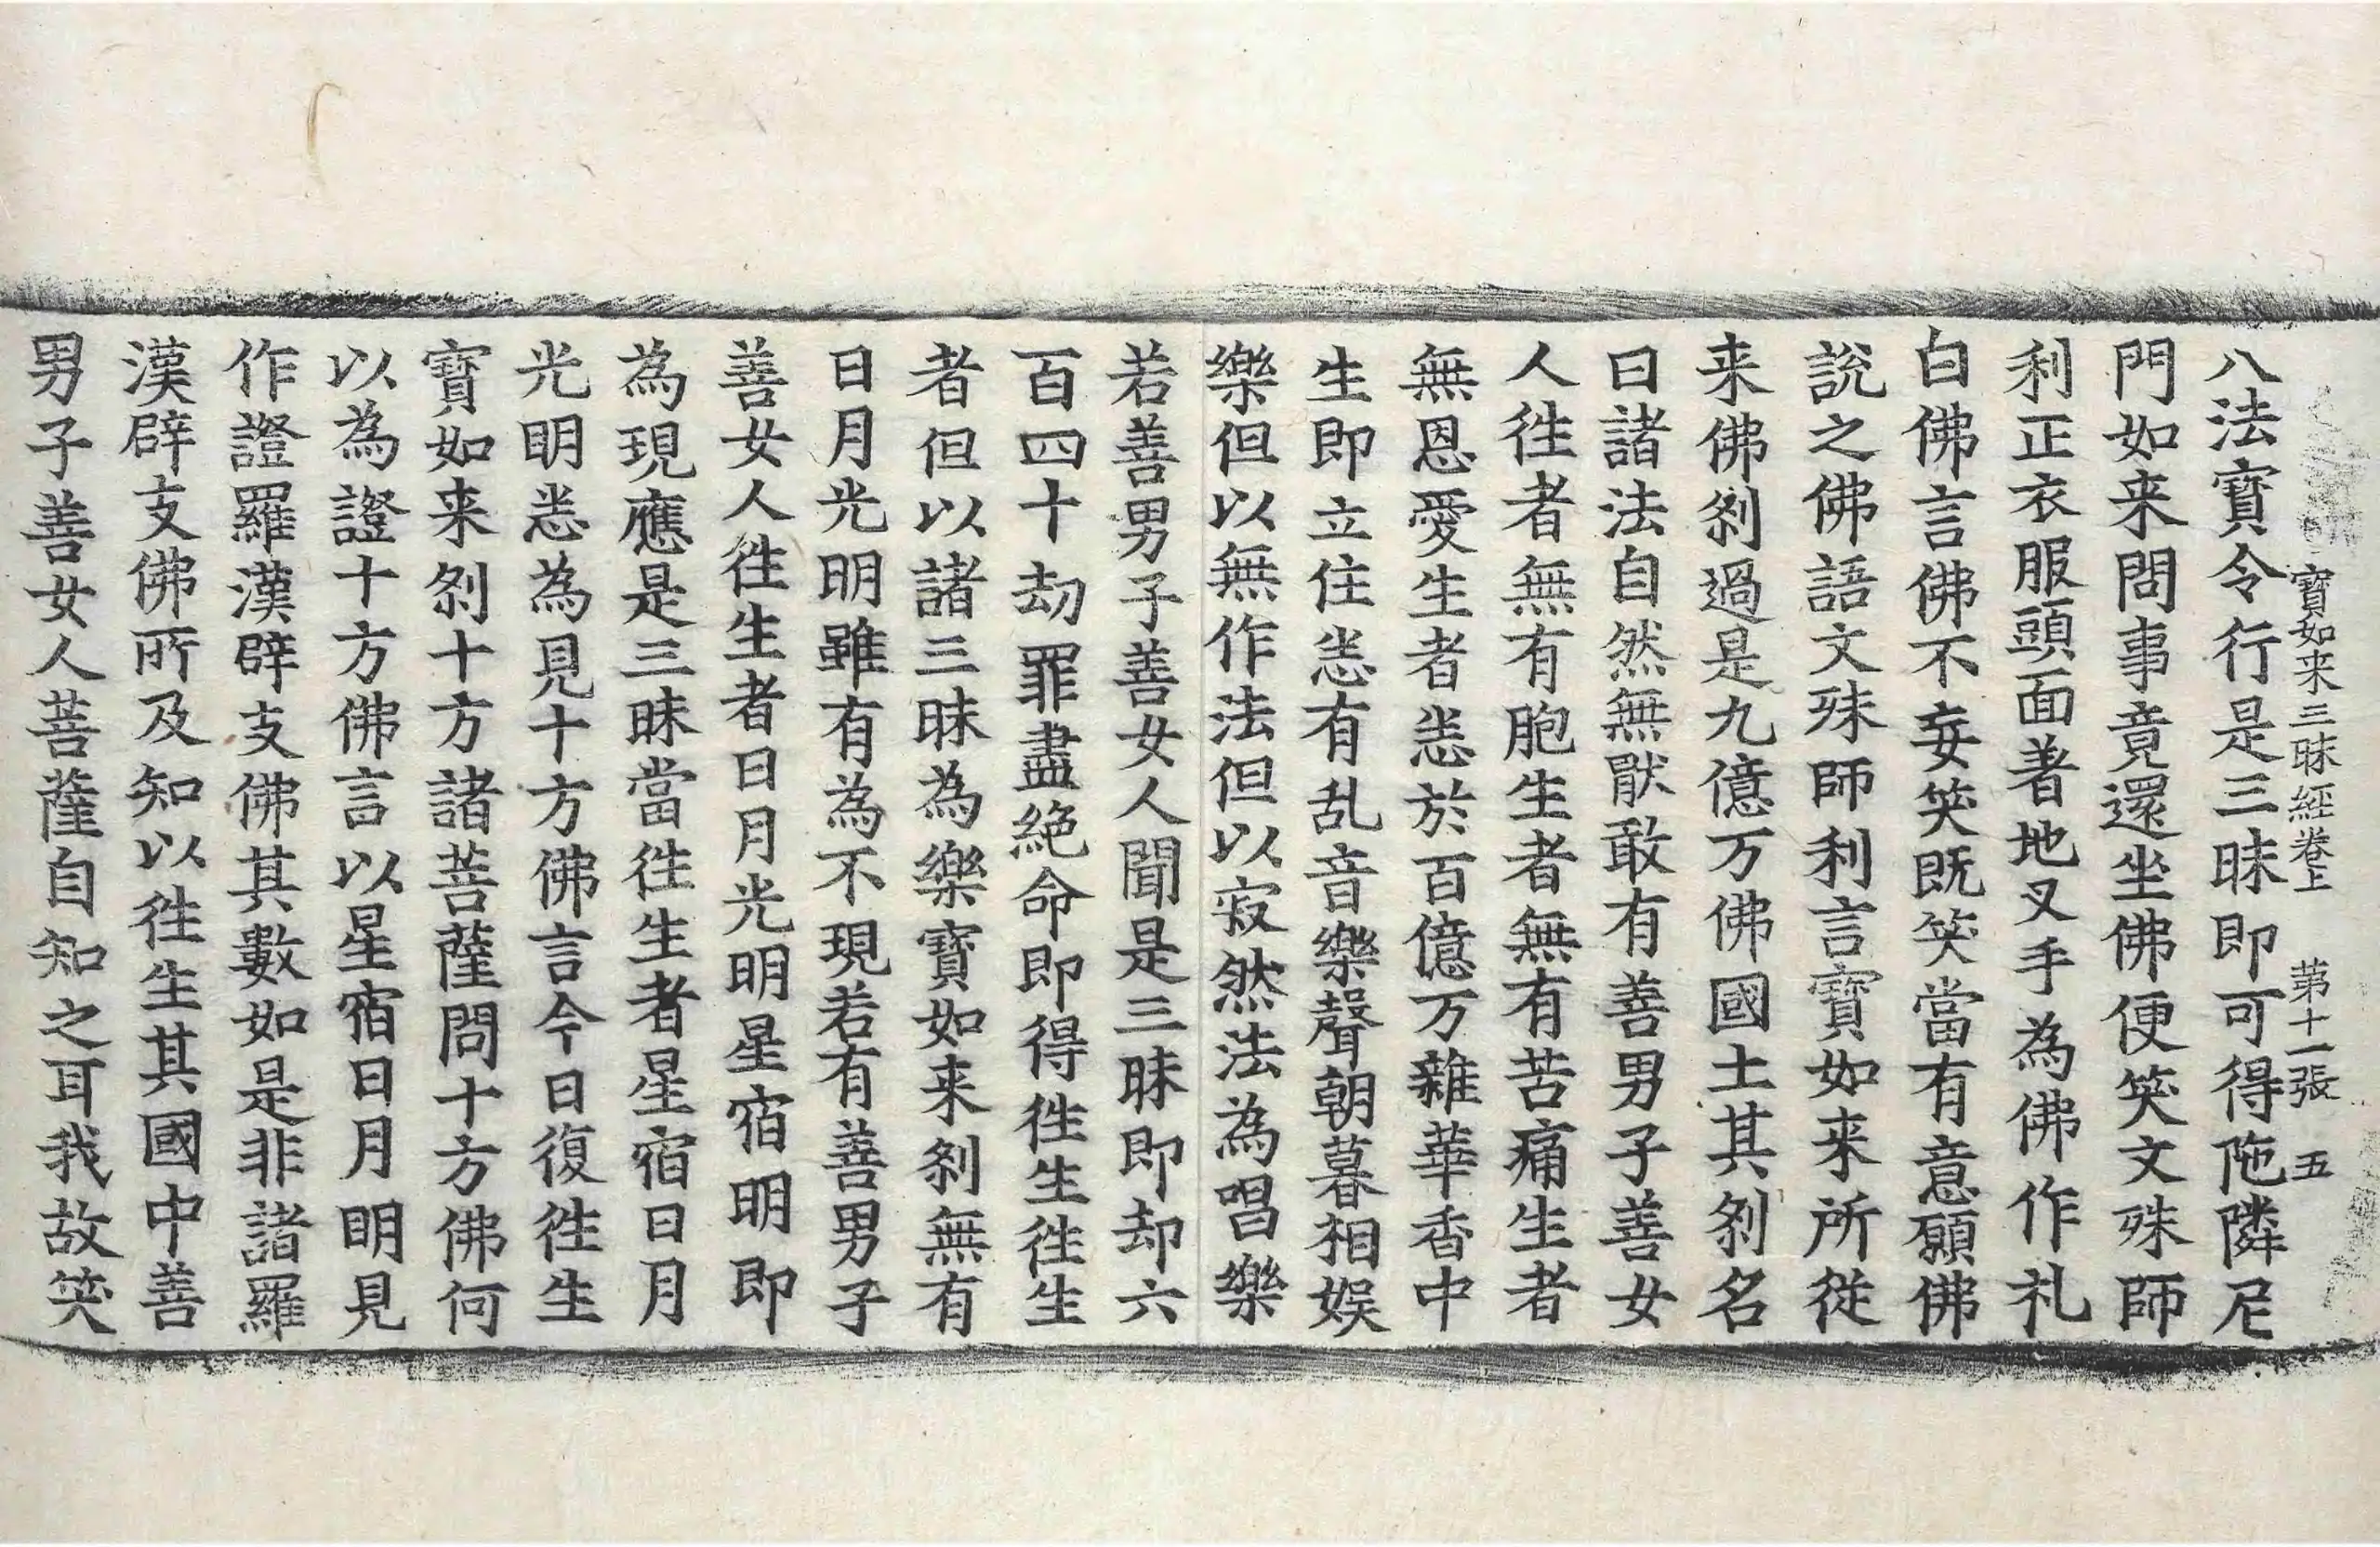 寶如来三昧經卷上　第十一張　五
八法寶令行是三昧即可得陁隣尼
門如来問事竟還坐佛便笑文殊師
利正衣服頭面著地叉手為佛作礼
白佛言佛不妄笑既笑當有意願佛
說之佛語文殊師利言寶如来所從
来佛剎過是九億万佛國土其剎名
曰諸法自然無猒敢有善男子善女
人徃者無有胞生者無有苦痛生者
無恩愛生者悉於百億万雜華香中
生即立住悉有乱音樂聲朝暮相娛
樂但以無作法但以寂然法為唱樂
若善男子善女人聞是三昧即却六
百四十劫罪盡絕命即得徃生徃生
者但以諸三昧為樂寶如来剎無有
日月光明雖有為不現若有善男子
善女人徃生者日月光明星宿明即
為現應是三昧當徃生者星宿日月
光明悉為見十方佛言今日復徃生
寶如来剎十方諸菩薩問十方佛何
以為證十方佛言以星宿日月明見
作證羅漢辟支佛其數如是非諸羅
漢辟支佛所及知以徃生其國中善
男子善女人菩薩自知之耳我故笑